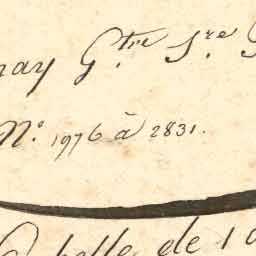 nay G.tre S.re
N.º 1976 à 2831.
halle de 1